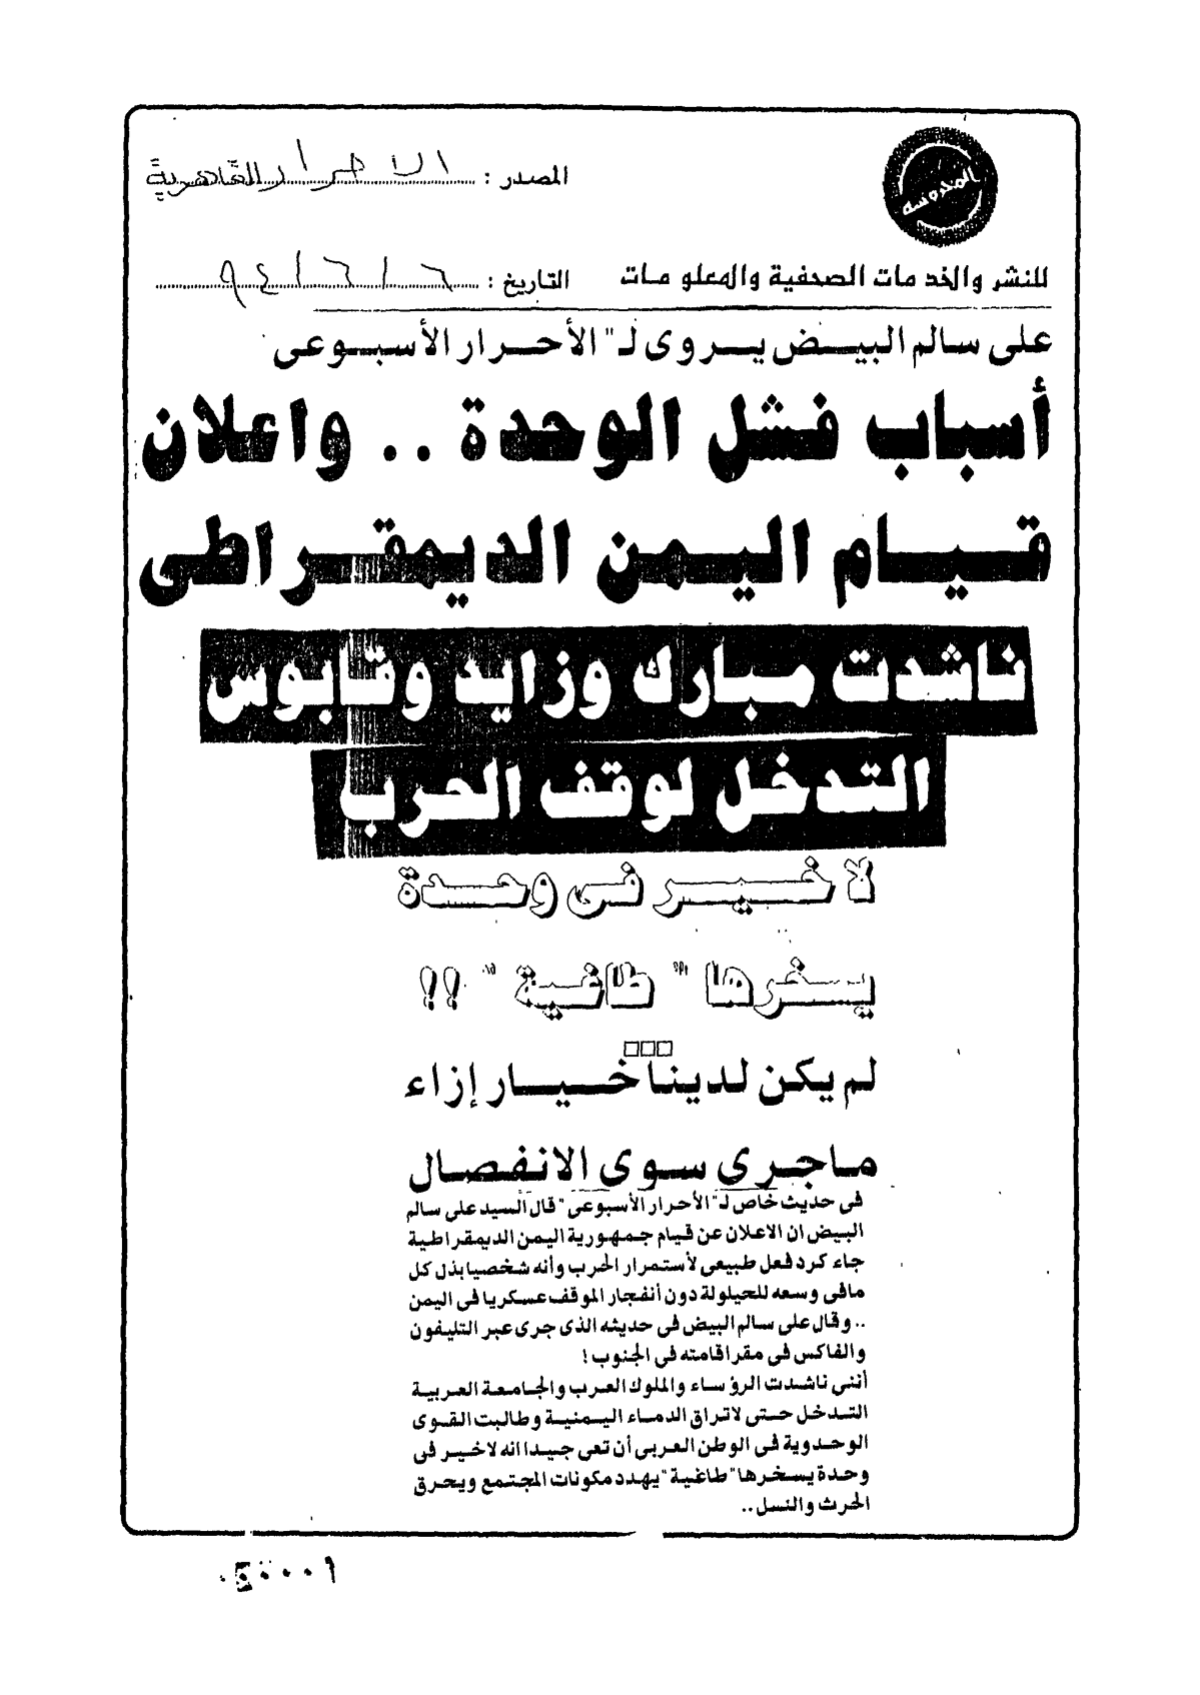 المحروسة
المصدر : الاحرار القاهرية
للنشر والخدمات الصحفية والمعلومات
التاريخ : ٩٤/٦/٦
على سالم البيض يروى لـ" الأحرار الأسبوعى
أسباب فشل الوحدة .. واعلان
قيام اليمن الديمقراطى
ناشدت مبارك وزايد وقابوس
التدخل لوقف الحرب
لا خير فى وحدة
يسخرها " طاغية " !!
لم يكن لدينا خيار إزاء
ماجرى سوى الانفصال
فى حديث خاص لـ"الأحرار الأسبوعى" قال السيد على سالم
البيض ان الاعلان عن قيام جمهورية اليمن الديمقراطية
جاء كرد فعل طبيعى لأستمرار الحرب وأنه شخصيا بذل كل
مافى وسعه للحيلولة دون أنفجار الموقف عسكريا فى اليمن
.. وقال على سالم البيض فى حديثه الذى جرى عبر التليفون
والفاكس فى مقر اقامته فى الجنوب !
أننى ناشدت الرؤساء والملوك العرب والجامعة العربية
التدخل حتى لاتراق الدماء اليمنية وطالبت القوى
الوحدوية فى الوطن العربى أن تعى جيدا انه لاخير فى
وحدة يسخرها "طاغية" يهدد مكونات المجتمع ويحرق
الحرث والنسل ..